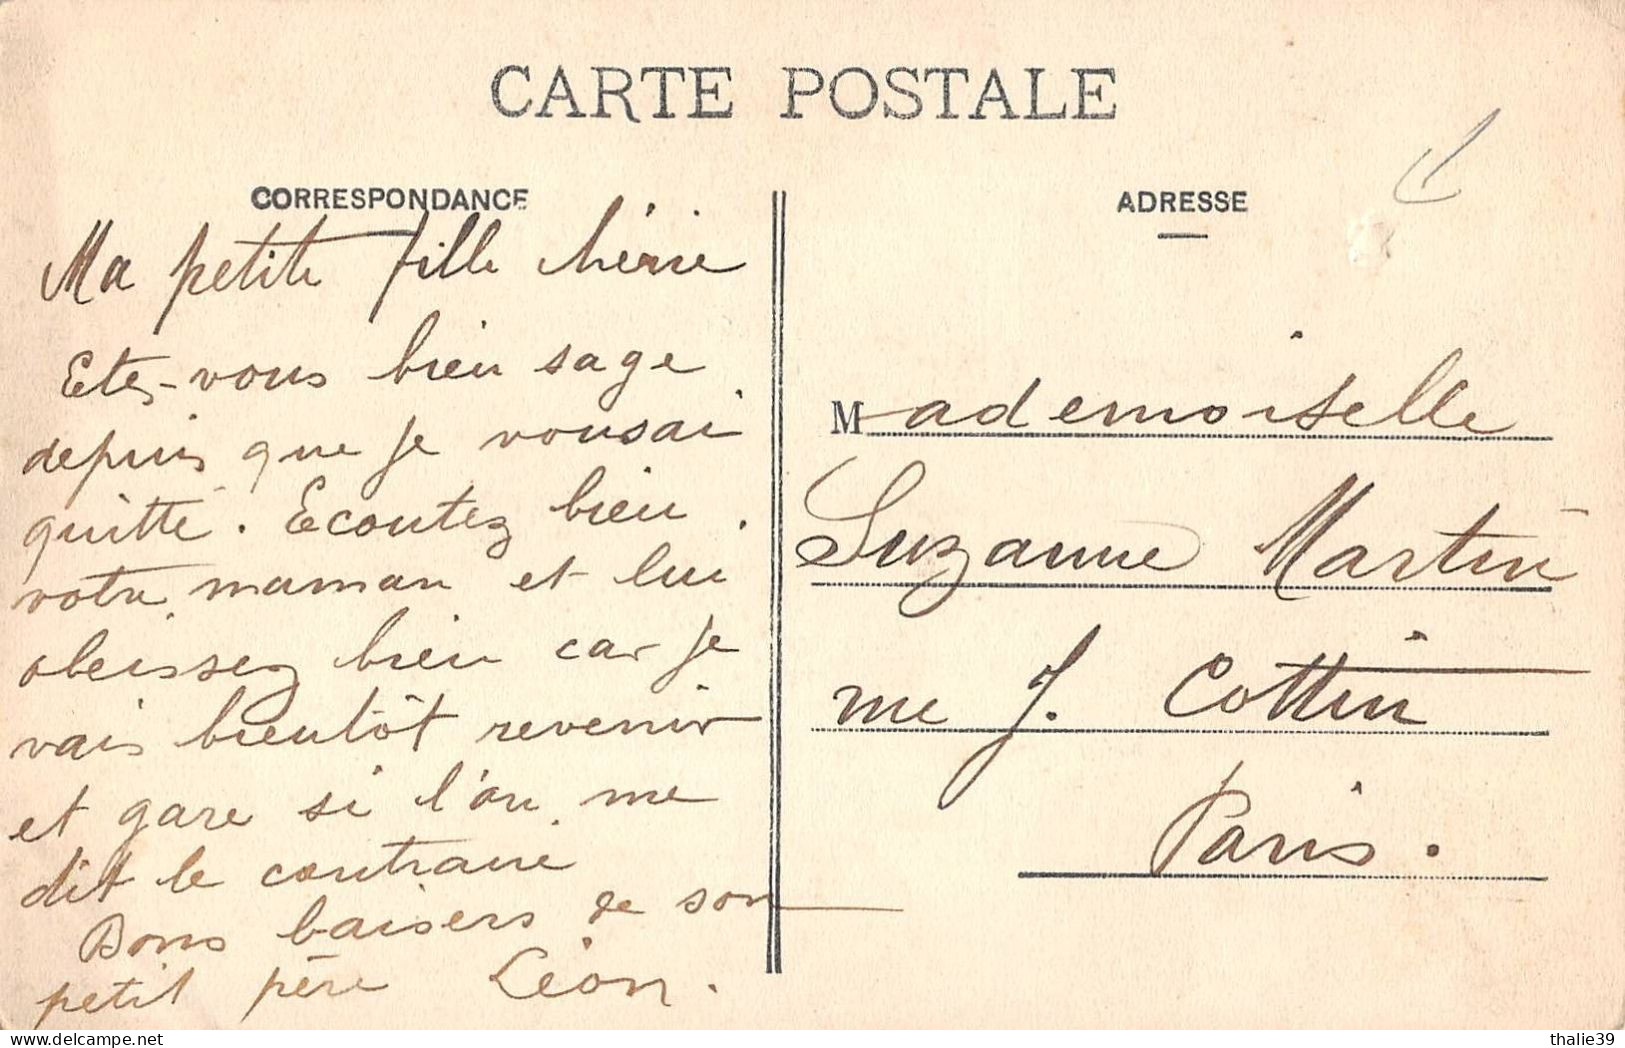 CARTE POSTALE
CORRESPONDANCE
Ma petite fille chérie
Etes-vous bien sage
depuis que je vousai
quitté. Ecoutez bien
votre maman et lui
obeissez bien car je
vais bientôt revenir
et gare si l'on me
dit le contraire
Bons baisers de son
petit père Léon.
ADRESSE
Mademoiselle
Suzanne Martin
rue J. Cottin
Paris.
thalie39